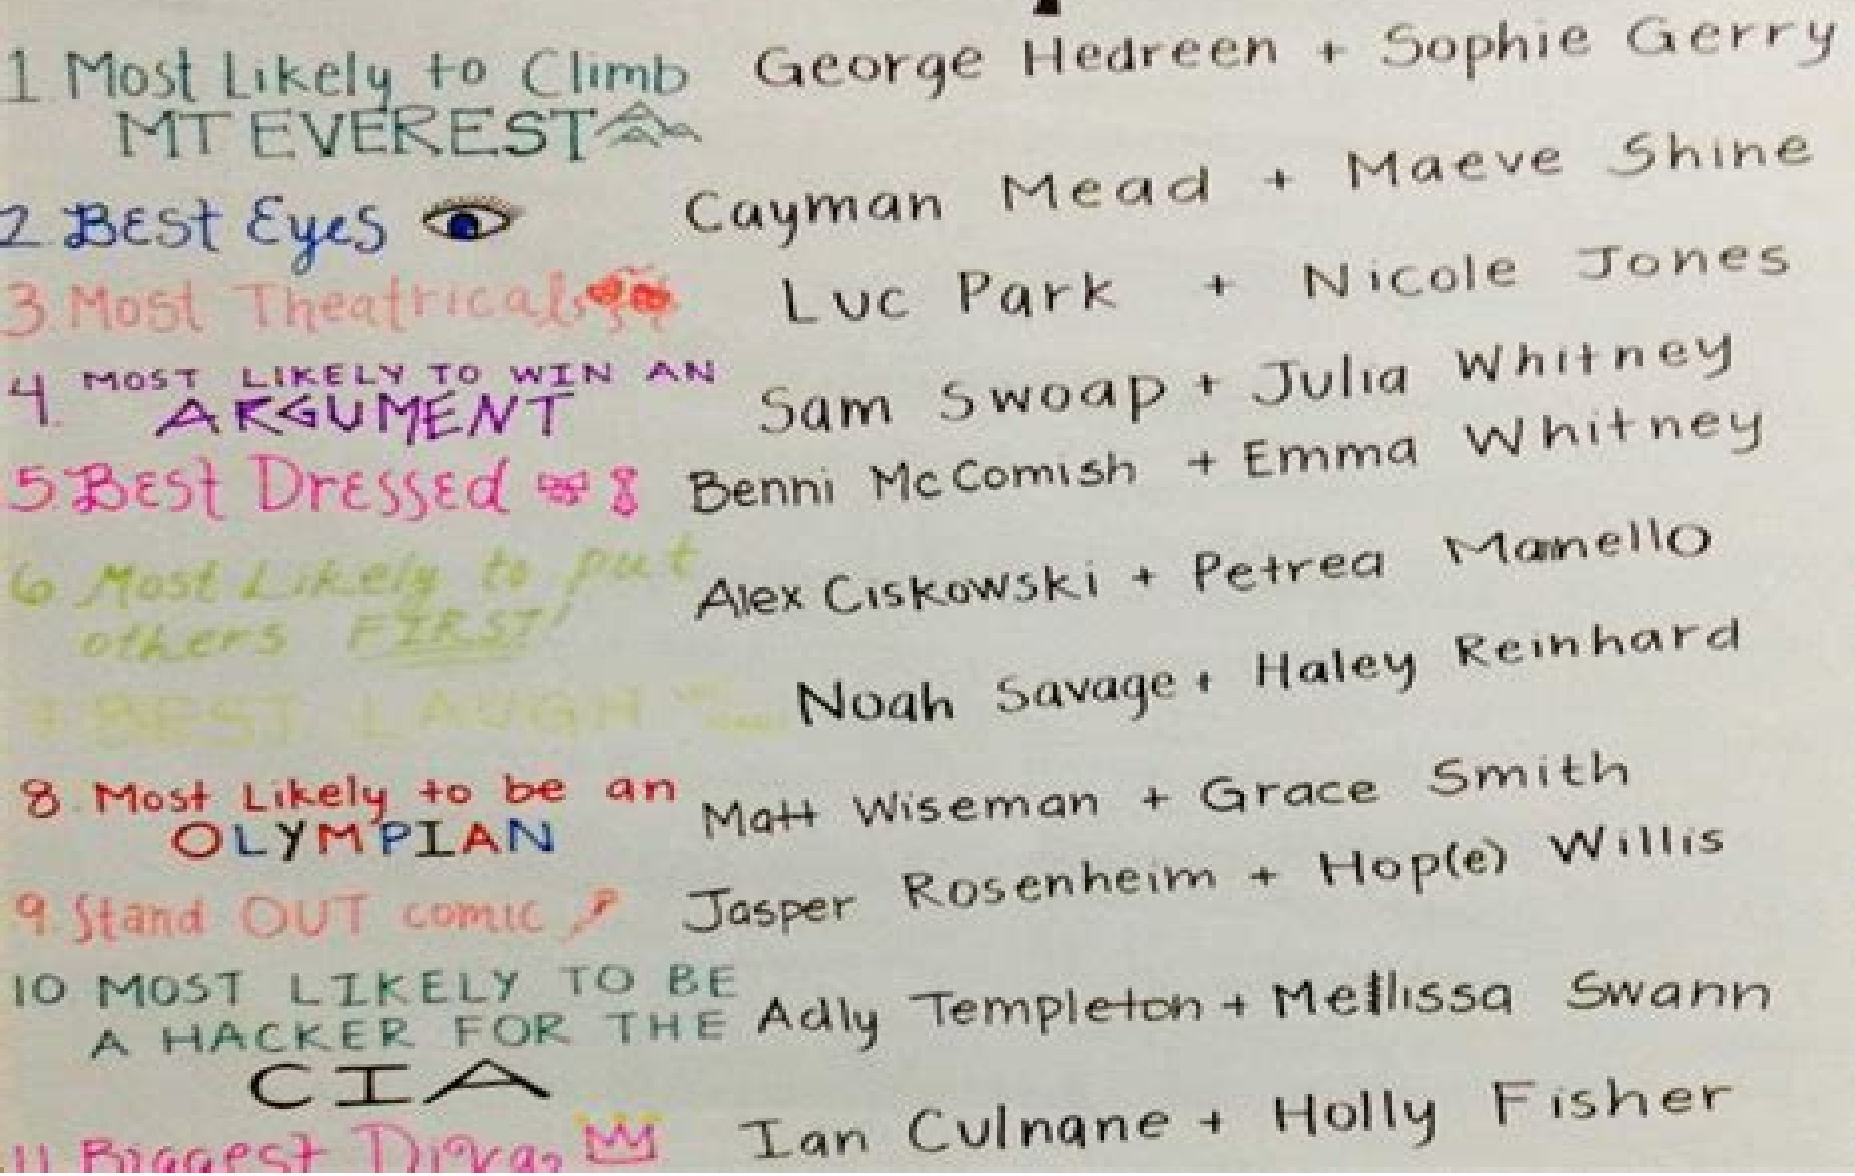 1 Most Likely to Climb George Hedreen + Sophie Gerry
MT EVEREST
2 Best Eyes Cayman Mead + Maeve Shine
3 Most Theatrical Luc Park + Nicole Jones
4. MOST LIKELY TO WIN AN
ARGUMENT Sam Swoap + Julia Whitney
5 Best Dressed Benni McComish + Emma Whitney
6 Most Likely to put
others FIRST! Alex Ciskowski + Petrea Mamello
7 BEST LAUGH Noah Savage + Haley Reinhard
8 Most Likely to be an Matt Wiseman + Grace Smith
OLYMPIAN
9 Stand OUT comic Jasper Rosenheim + Hop(e) Willis
10 MOST LIKELY TO BE
A HACKER FOR THE Adly Templeton + Mellissa Swann
CIA
11 Biggest Ian Culnane + Holly Fisher